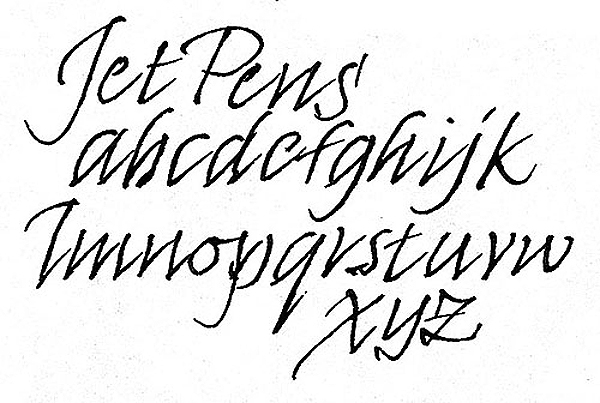 Jet Pens
abcdefghijk
lmnopqrstuvw
xyz